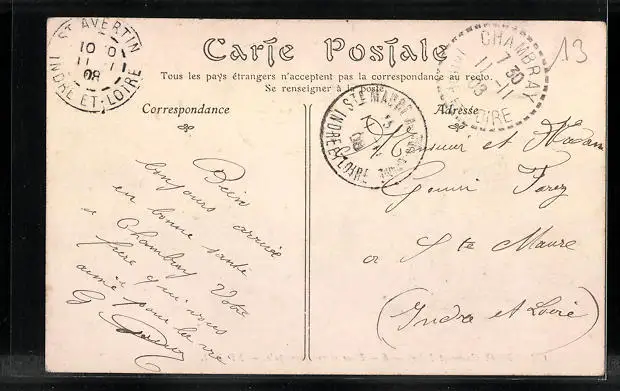 Carte Postale
Tous les pays étrangers n'acceptent pas la correspondance au recto.
Se renseigner à la poste.
Correspondance
Adresse
ST AVERTIN
10 10
11 -11
08
INDRE-ET-LOIRE
CHAMBRAY
7 30
11 -11
08
LOIRE
STE MAURE
INDRE-ET-LOIRE
13
Bien
toujours arrivée
en bonne santé
a Chambray Votre
frère qui vous
aime pour la vie
G.
Monsieur et Madame
a Ste Maure
(Indre et Loire)